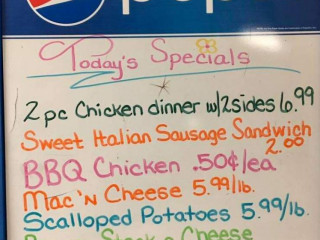 pepsi
Today's Specials
2 pc Chicken dinner w/2sides 6.99
Sweet Italian Sausage Sandwich
2.00
BBQ Chicken .50¢/ea
Mac 'N Cheese 5.99/lb.
Scalloped Potatoes 5.99/lb.
Cheese